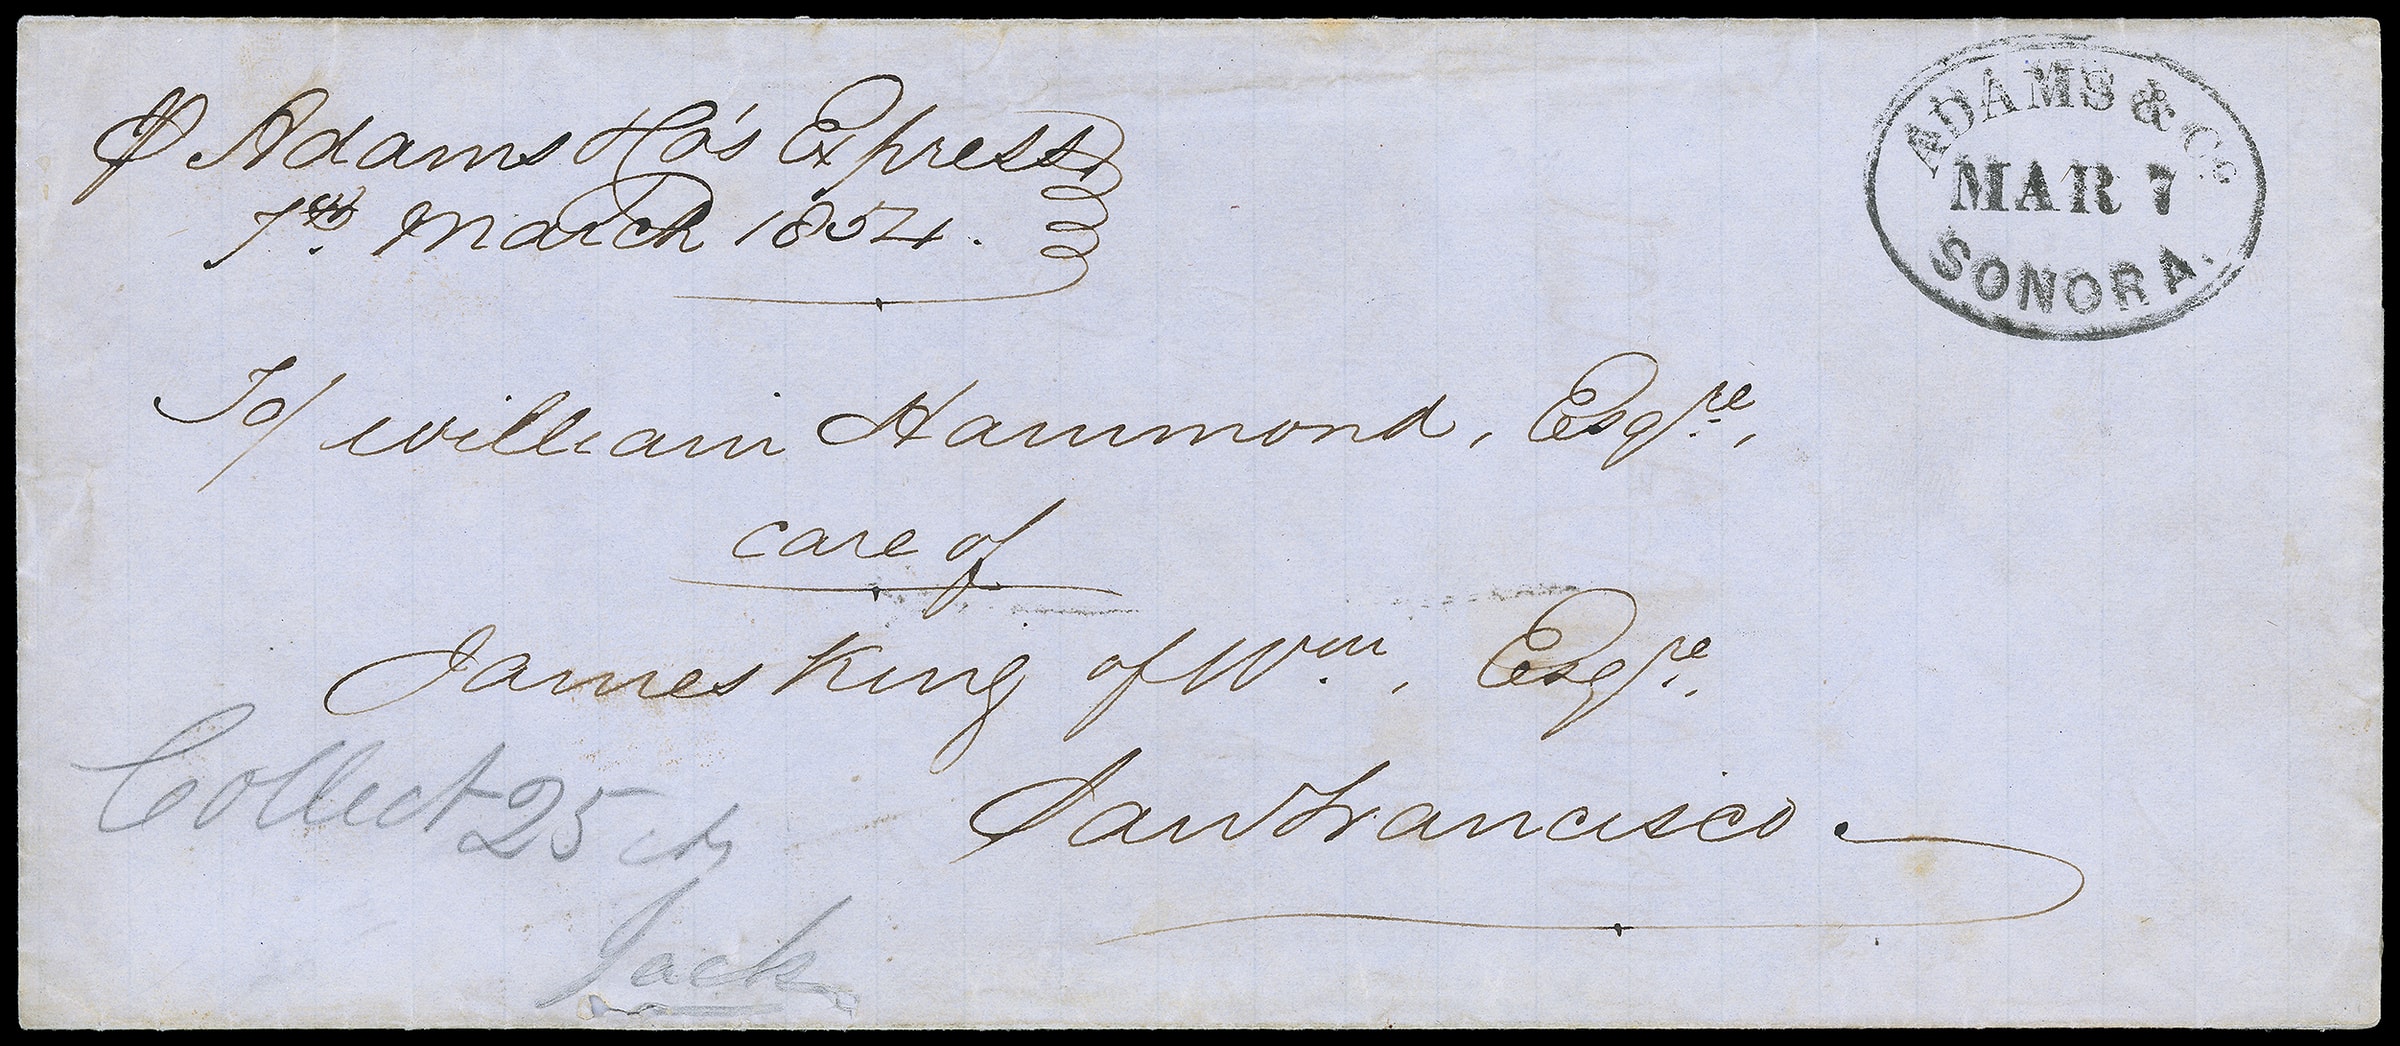 ℘ Adams & Co's Express
7th. March 1854.
ADAMS & Co.
MAR 7
SONORA.
To/ William Hammond, Esqre.,
care of
James King of Wm., Esqre.
San Francisco.
Collect 25 cts
Jack